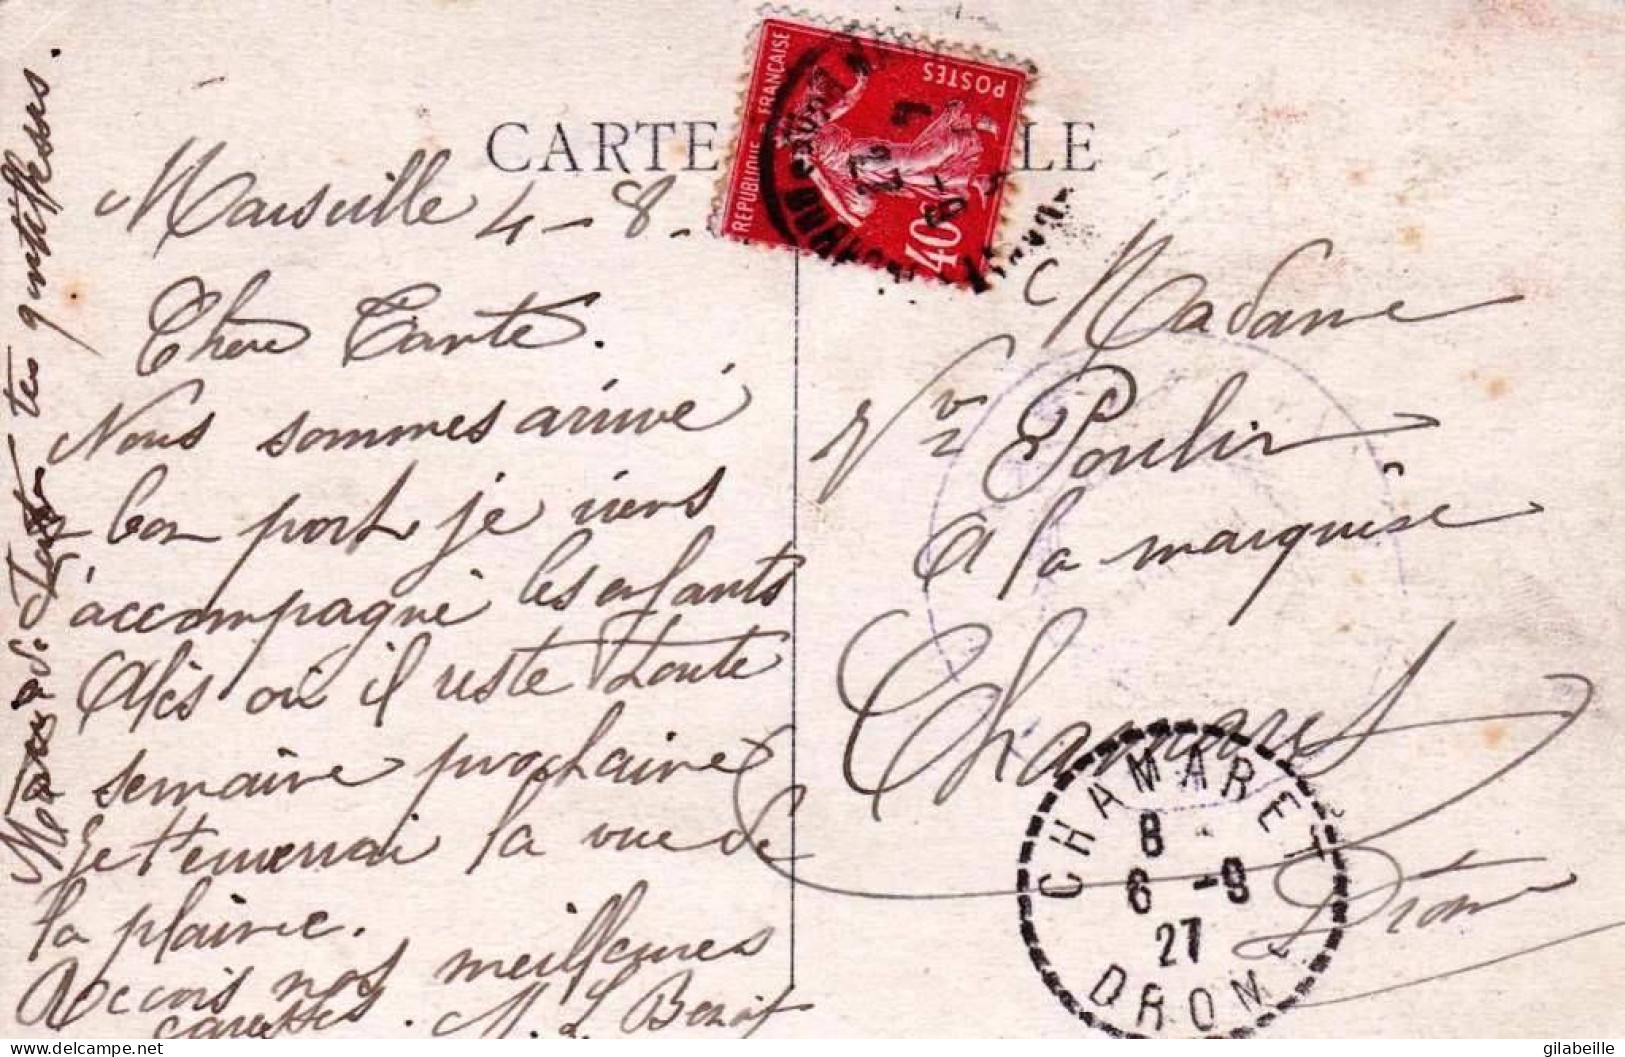 CARTE LE
REPUBLIQUE FRANÇAISE
POSTES
40
Marseille 4 - 8 -
Chère Tante.
Nous sommes arrivé
a bon port je viens
d'accompagné les enfants
Alès où il reste toute
semaine prochaine
Je t'enverrai la vue de
la plaine.
Reçois nos meilleures
caresses. M. L. Benoit
tes gentillesses.
Madame
Vve Poulin
a la marquise
Chamaret
Drôme
CHAMARET
8
6 -9
27
DROME
gilabeille